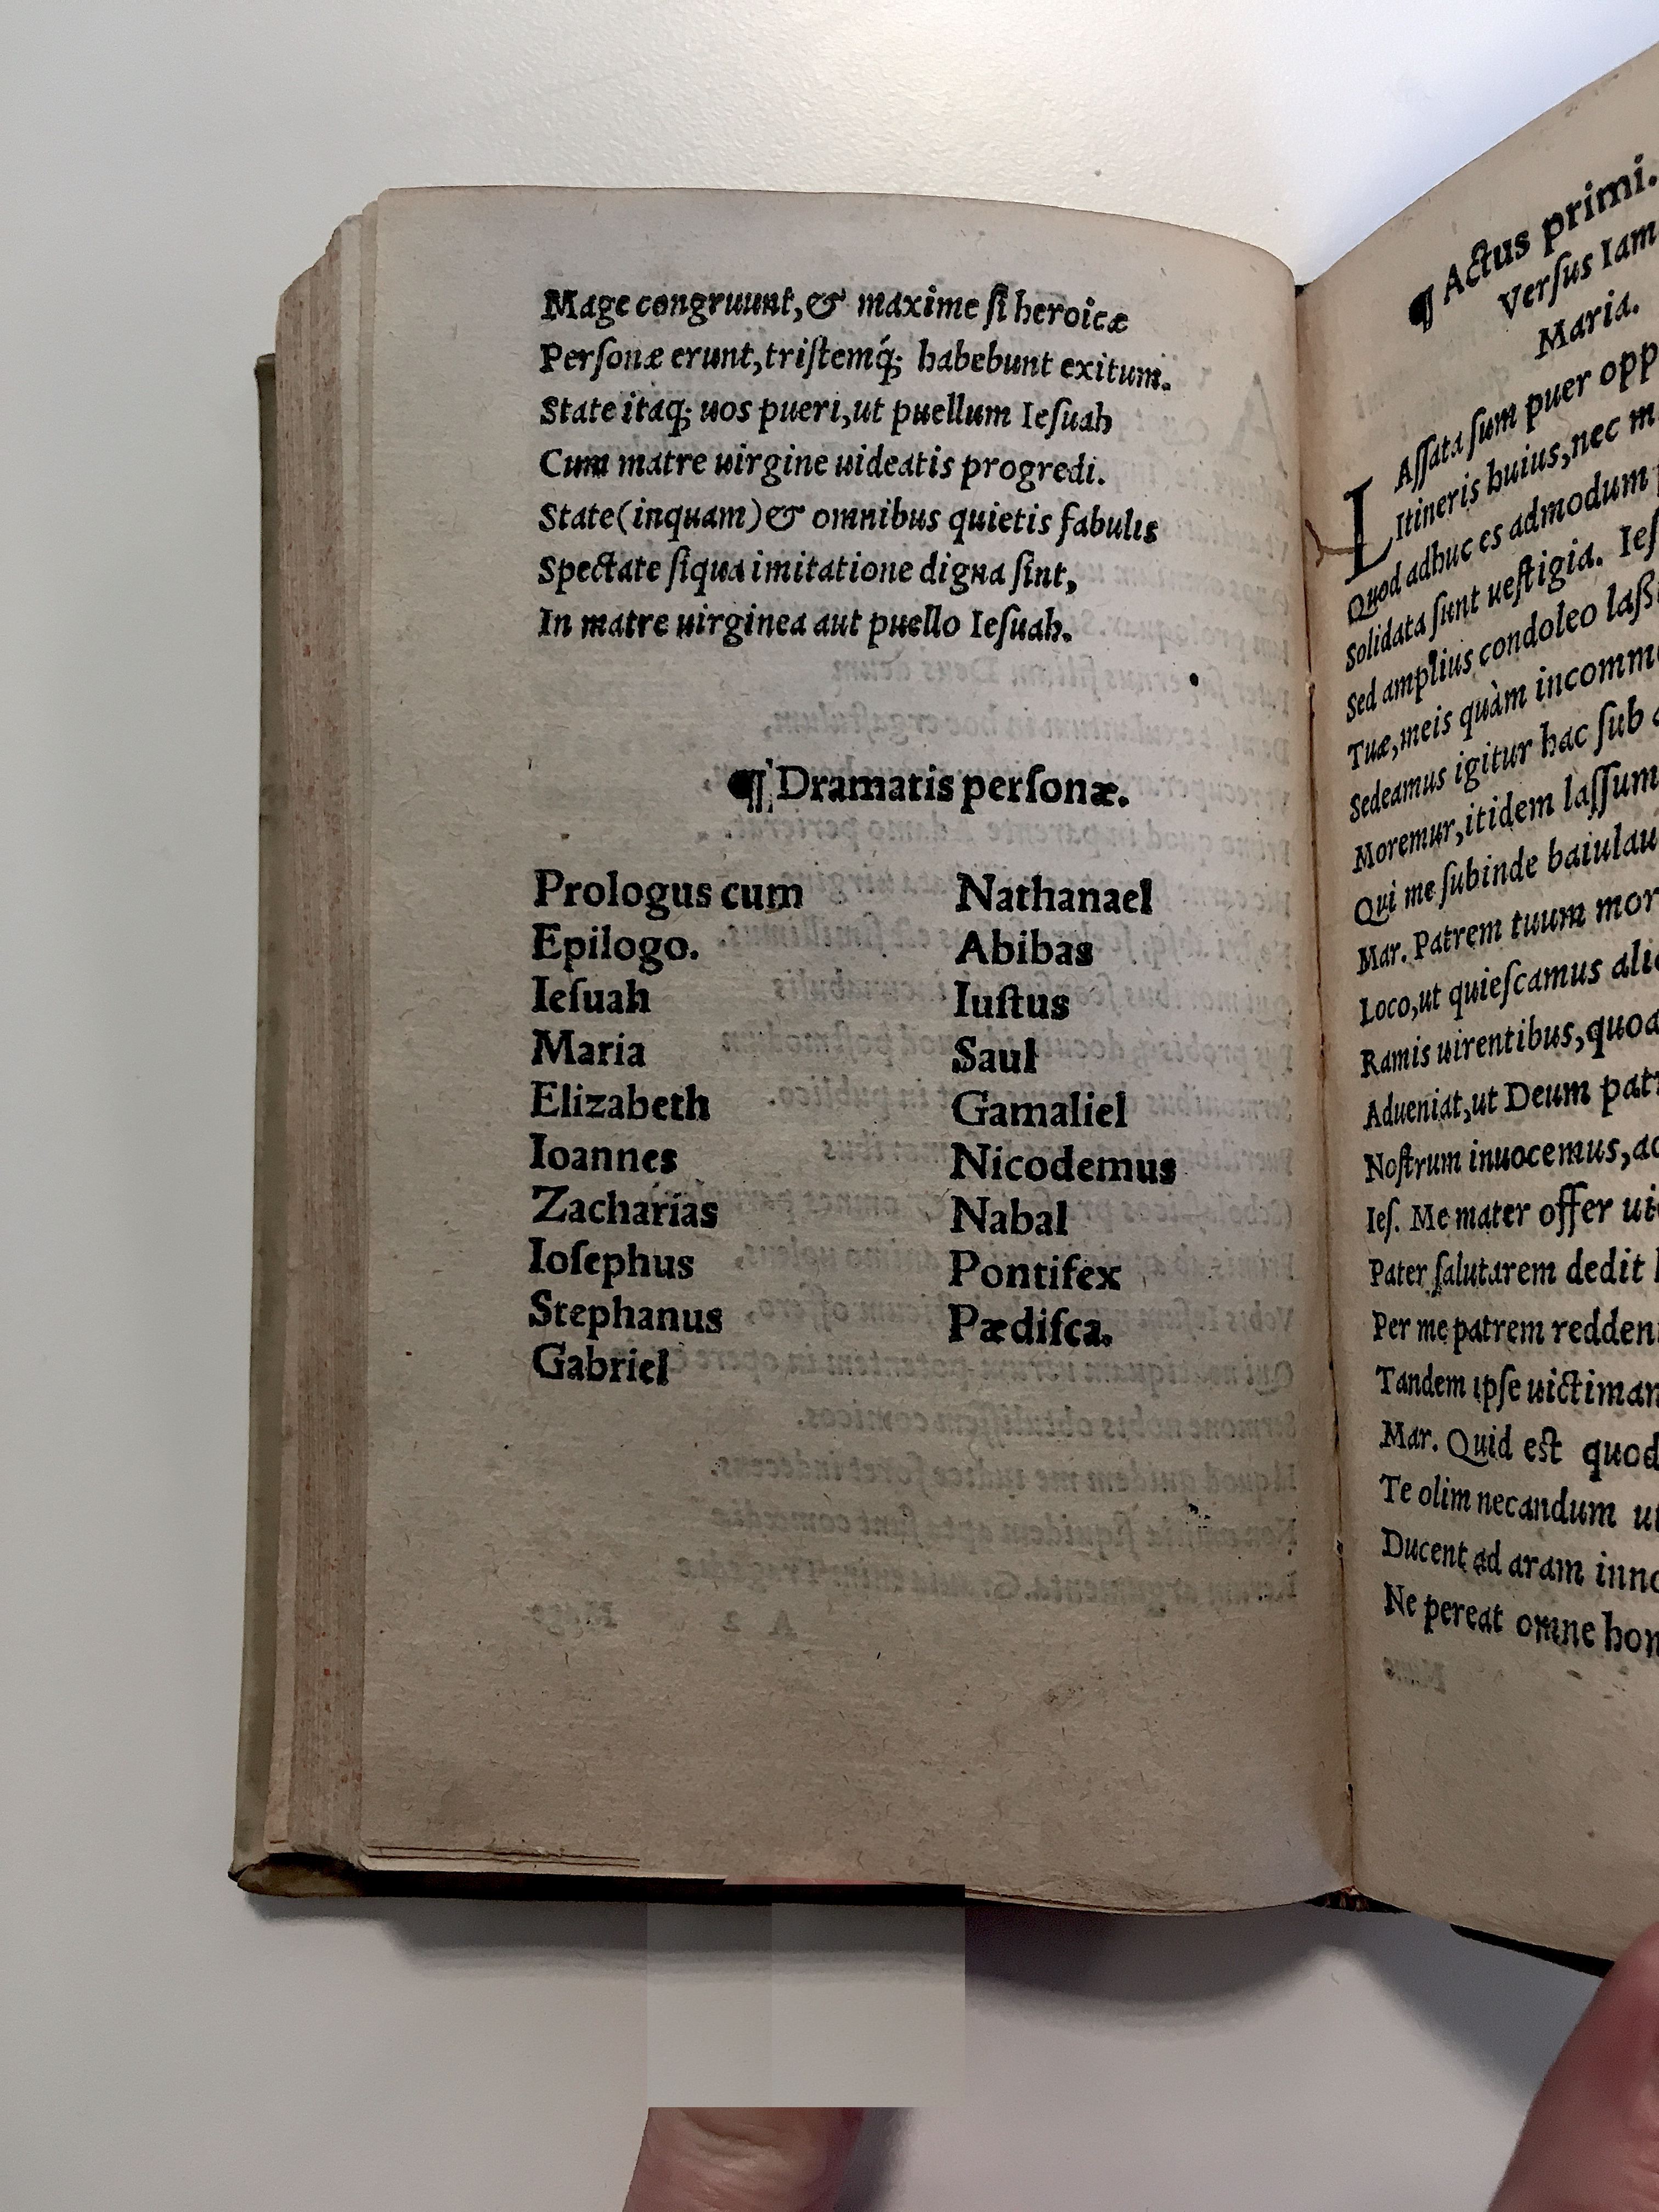 Mage congruunt,& maxime ſi heroicæ
Perſonæ erunt,triſtemq́; habebunt exitum.
State itaq; uos pueri,ut puellum Ieſuah
Cum matre uirgine uideatis progredi.
State(inquam)& omnibus quietis fabulis
Spectate ſiqua imitatione digna ſint,
In matre uirginea aut puello Ieſuah.
¶ Dramatis perſonæ.
Prologus cum
Epilogo.
Ieſuah
Maria
Elizabeth
Ioannes
Zacharias
Ioſephus
Stephanus
Gabriel
Nathanael
Abibas
Iuſtus
Saul
Gamaliel
Nicodemus
Nabal
Pontifex
Pædiſca.
¶ Actus primi.
Verſus Iam
Maria.
LAſſata ſum puer
Itineris huius,nec
Quod adhuc es admodum
Solidata ſunt ueſtigia.
Sed amplius condoleo
Tuæ,meis quàm
Sedeamus igitur hac ſub
Moremur,itidem laſſum
Qui me ſubinde
Mar. Patrem tuum
Loco,ut quieſcamus
Ramis uirentibus,
Adueniat,ut Deum
Noſtrum inuocemus,
Ieſ. Me mater offer
Pater ſalutarem dedit
Per me patrem
Tandem ipſe
Mar. Quid eſt quod
Te olim necandum
Ducent ad aram
Ne pereat omne